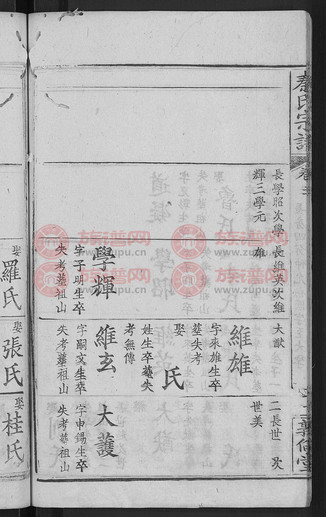 秦氏宗譜
長學昭次學
輝三學元
長維英次維
雄
大猷
二長世 次
世美
維雄
字來雄生卒
塟失考
娶 氏
姓生卒塟失
考無傳
大護
字申錫生卒
失考塟祖山
學輝
字子明生卒
失考塟祖山
維玄
字嗣文生卒
失考塟祖山
娶 羅氏
娶 張氏
娶 桂氏
族譜网